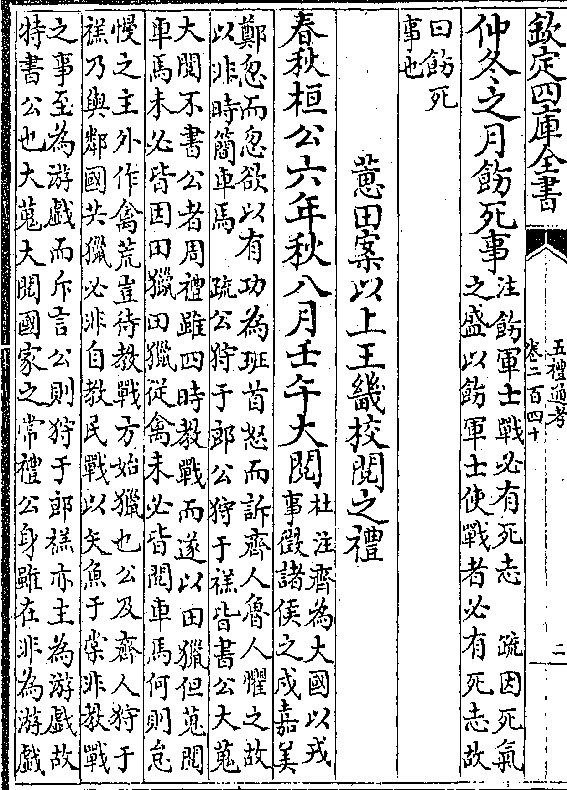 欽定四庫全書
五禮通考
卷二百四十
二
仲冬之月飭死事
注飭軍士戰必有死志　疏因死氣
之盛以飭軍士使戰者必有死志故
曰飭死
事也
蕙田案以上王畿校閱之禮
春秋桓公六年秋八月壬午大閱
杜注齊為大國以戎
事徵諸侯之戍嘉美
鄭忽而忽欲以有功為班首怒而訴齊人魯人懼之故
以非時簡車馬　疏公狩于郎公狩于禚皆書公大蒐
大閱不書公者周禮雖四時教戰而遂以田獵但蒐閱
車馬未必皆因田獵田獵從禽未必皆閱車馬何則怠
慢之主外作禽荒豈待教戰方始獵也公及齊人狩于
禚乃與鄰國共獵必非自教民戰以矢魚于棠非教戰
之事至為游戲而斥言公則狩于郎禚亦主為游戲故
特書公也大蒐大閱國家之常禮公身雖在非為游戲